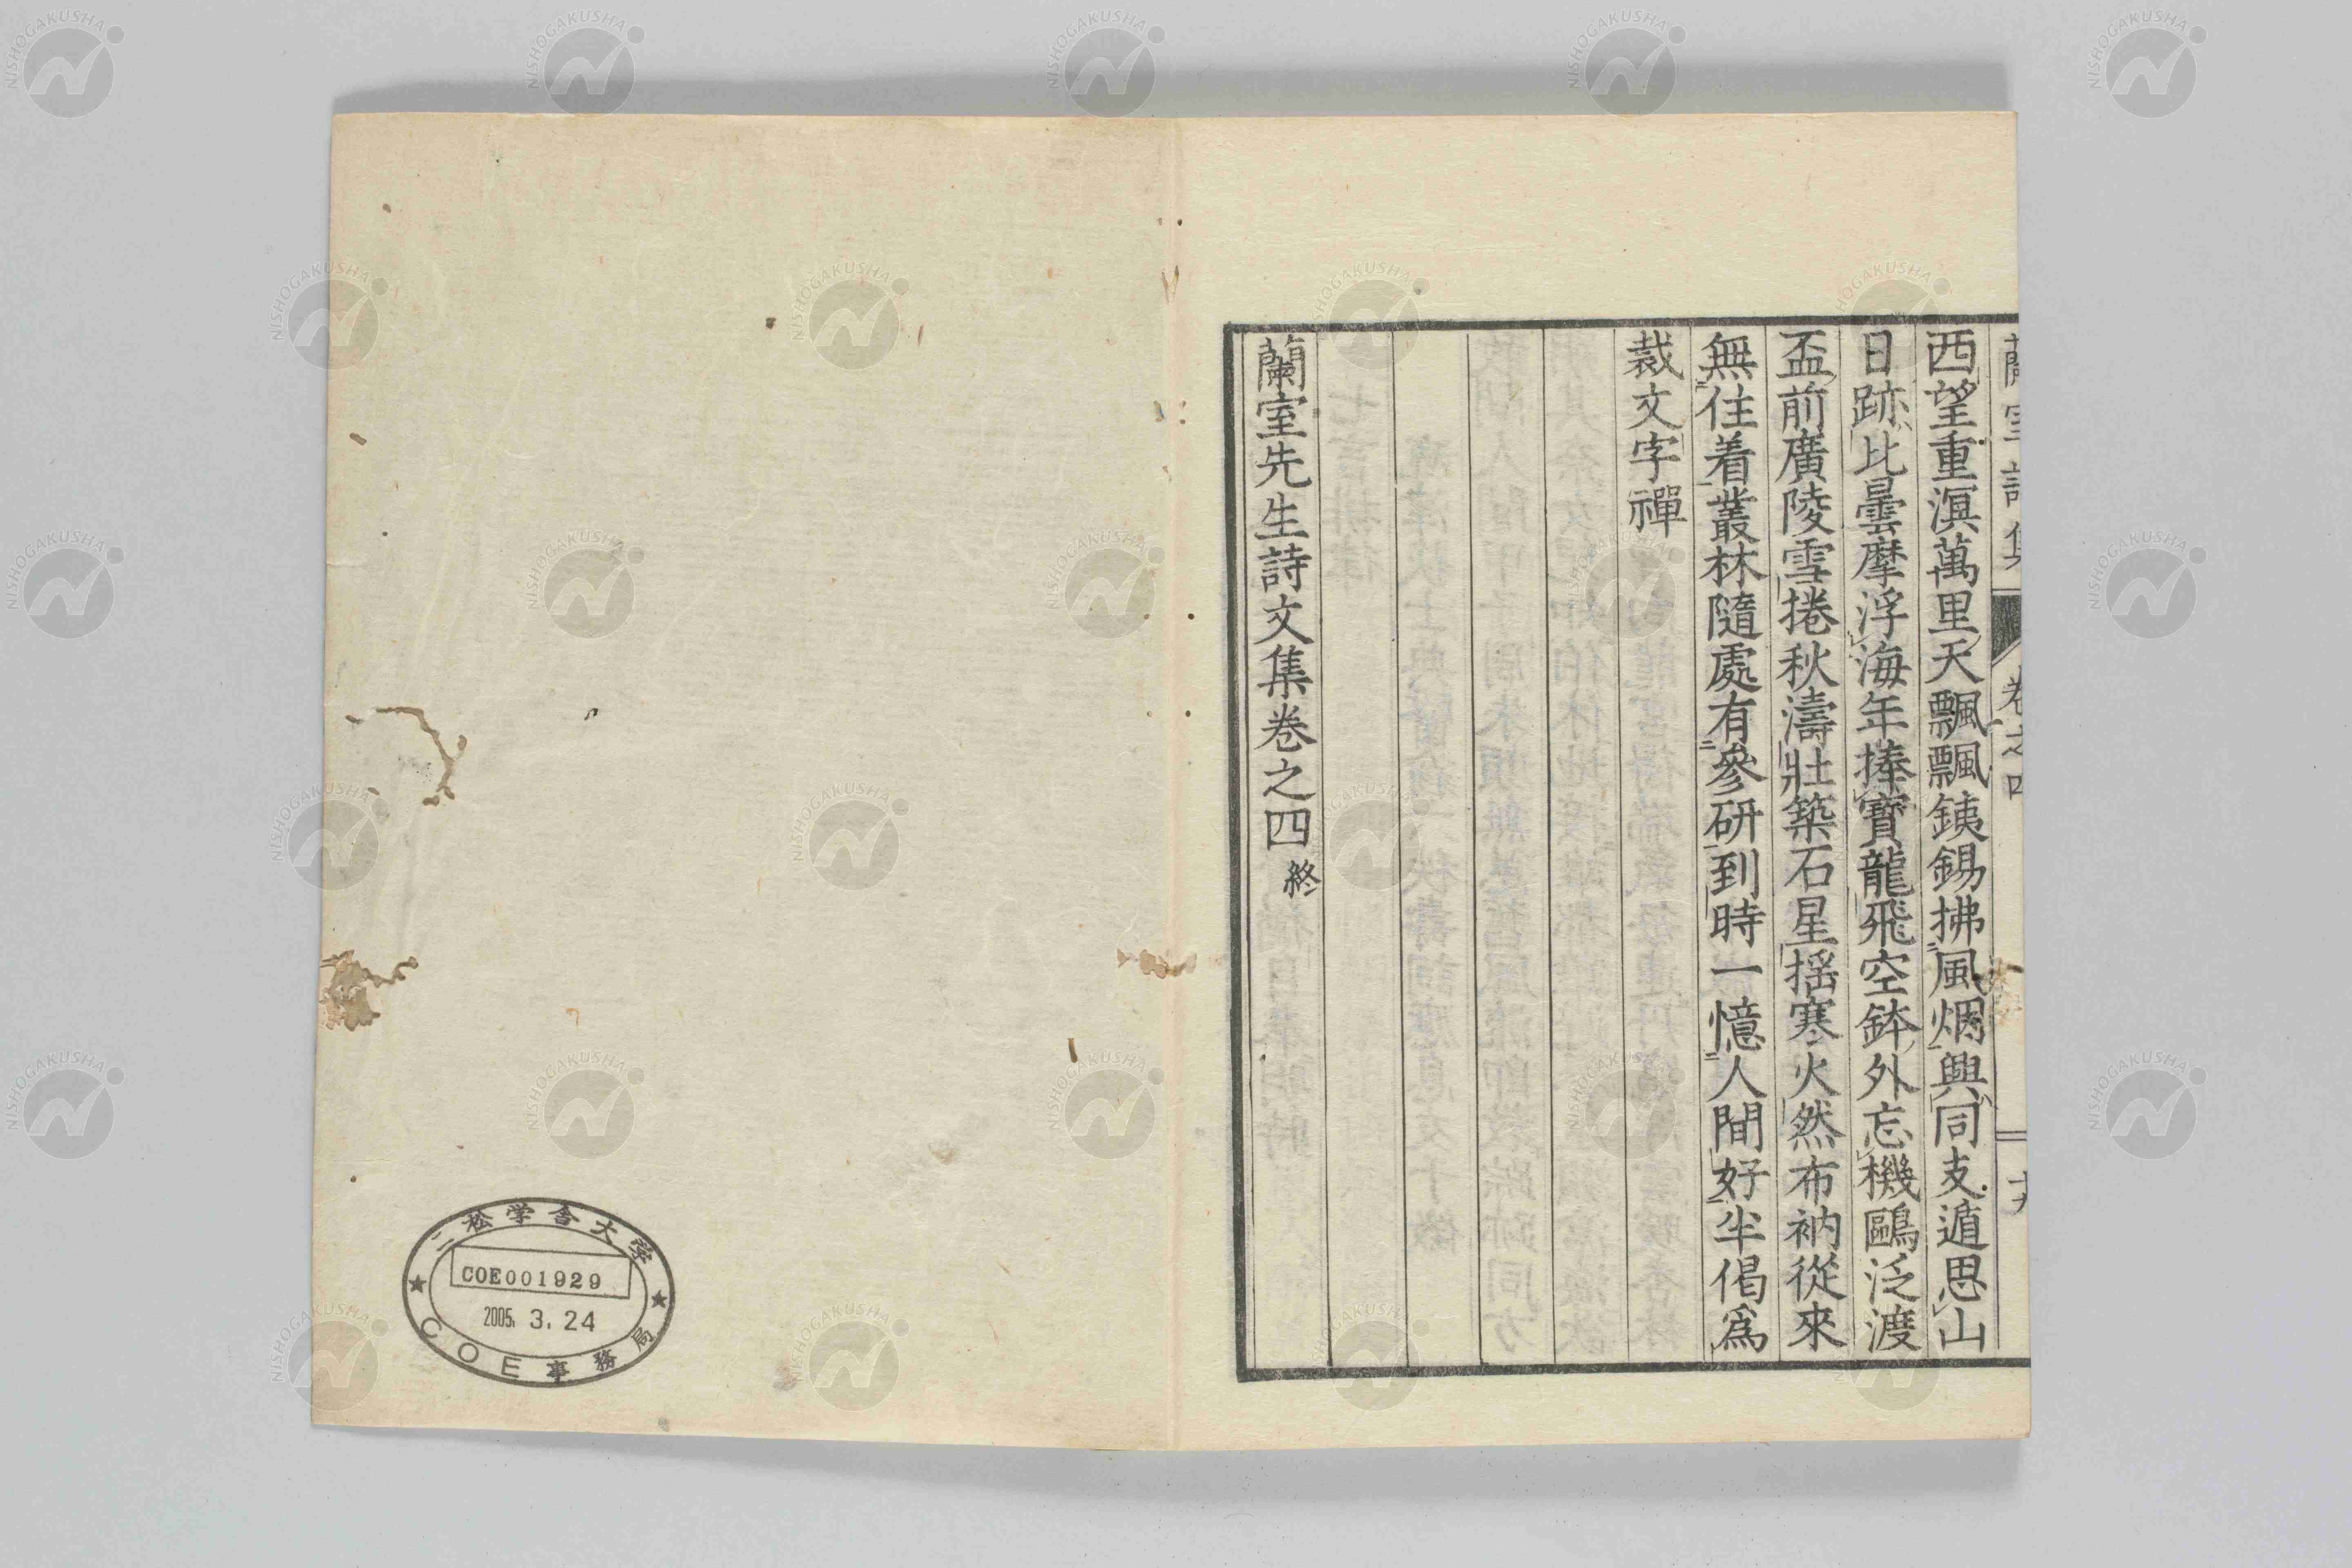 西望重溟萬里天飄飄銕錫拂風烟興同支遁思山
日跡比曇摩浮海年捧寶龍飛空鉢外忘機鷗泛渡
盃前廣陵雪捲秋濤壯築石星揺寒火然布衲從來
無住着叢林隨處有參研到時一憶人間好半偈爲
裁文字禪
蘭室先生詩文集卷之四終
二松学舎大学
COE001929
2005. 3. 24
COE事務局
NISHOGAKUSHA